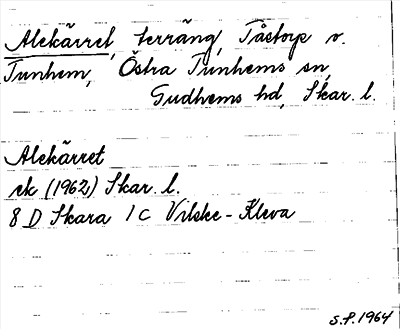 Alekärret, terräng, Tåstorp v.
Tunhem, Östra Tunhems sn,
Gudhems hd, Skar. l.
Alekärret
ek (1962) Skar. l.
8 D Skara 1 c Vilske-Kleva
S.P. 1964